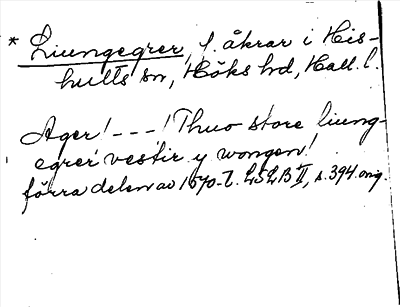 * Liungegrer, f. åkrar i His-
hults sn, Höks hd, Hall. l.
Ager! - - - ! Thuo store liung-
egrer vestir y wongen!
förra delen av 1570-t. LSLB II, s. 394. orig.